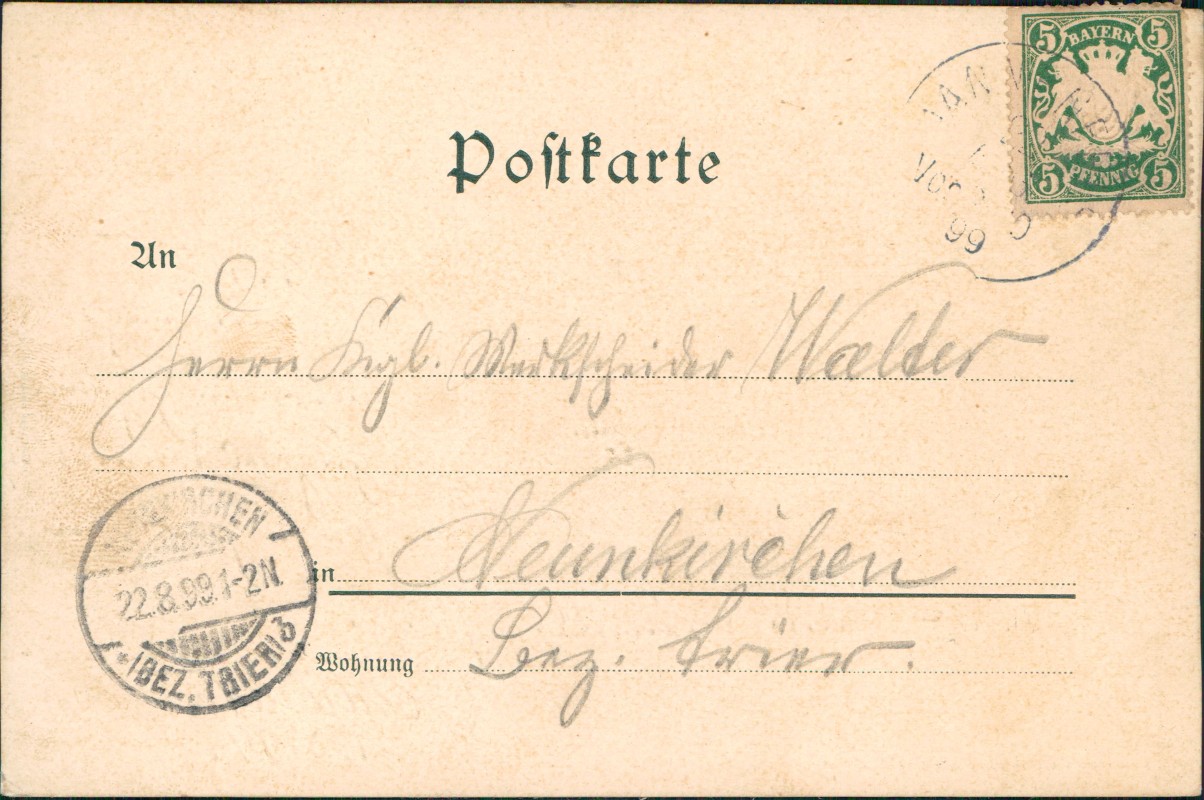 5 BAYERN 5
5 PFENNIG 5
Vor
99
Poſtkarte
An
Herrn Kgl. Markscheider Walter
NEUNKIRCHEN
22.8.99.1-2N.
* (BEZ. TRIER) b
in Neunkirchen
Wohnung Bez. Trier.